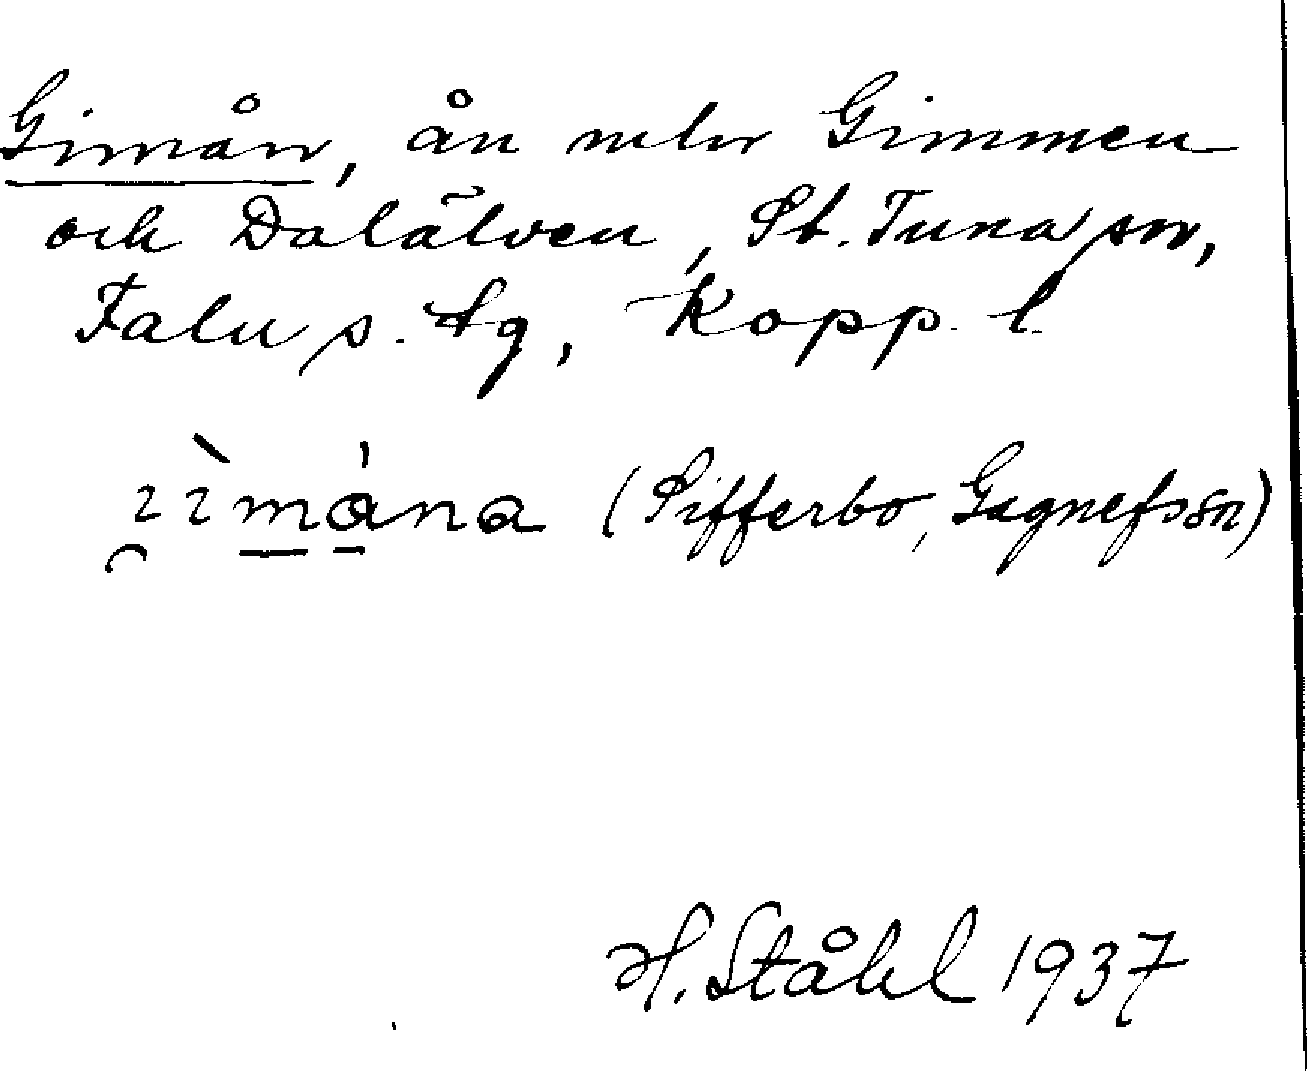 Gimån, ån mlr Gimmen
och Dalälven, St. Tuna sn,
Falu s. tg, Kopp. l.
(Sifferbo, Gagnefs sn)
H. Ståhl 1937